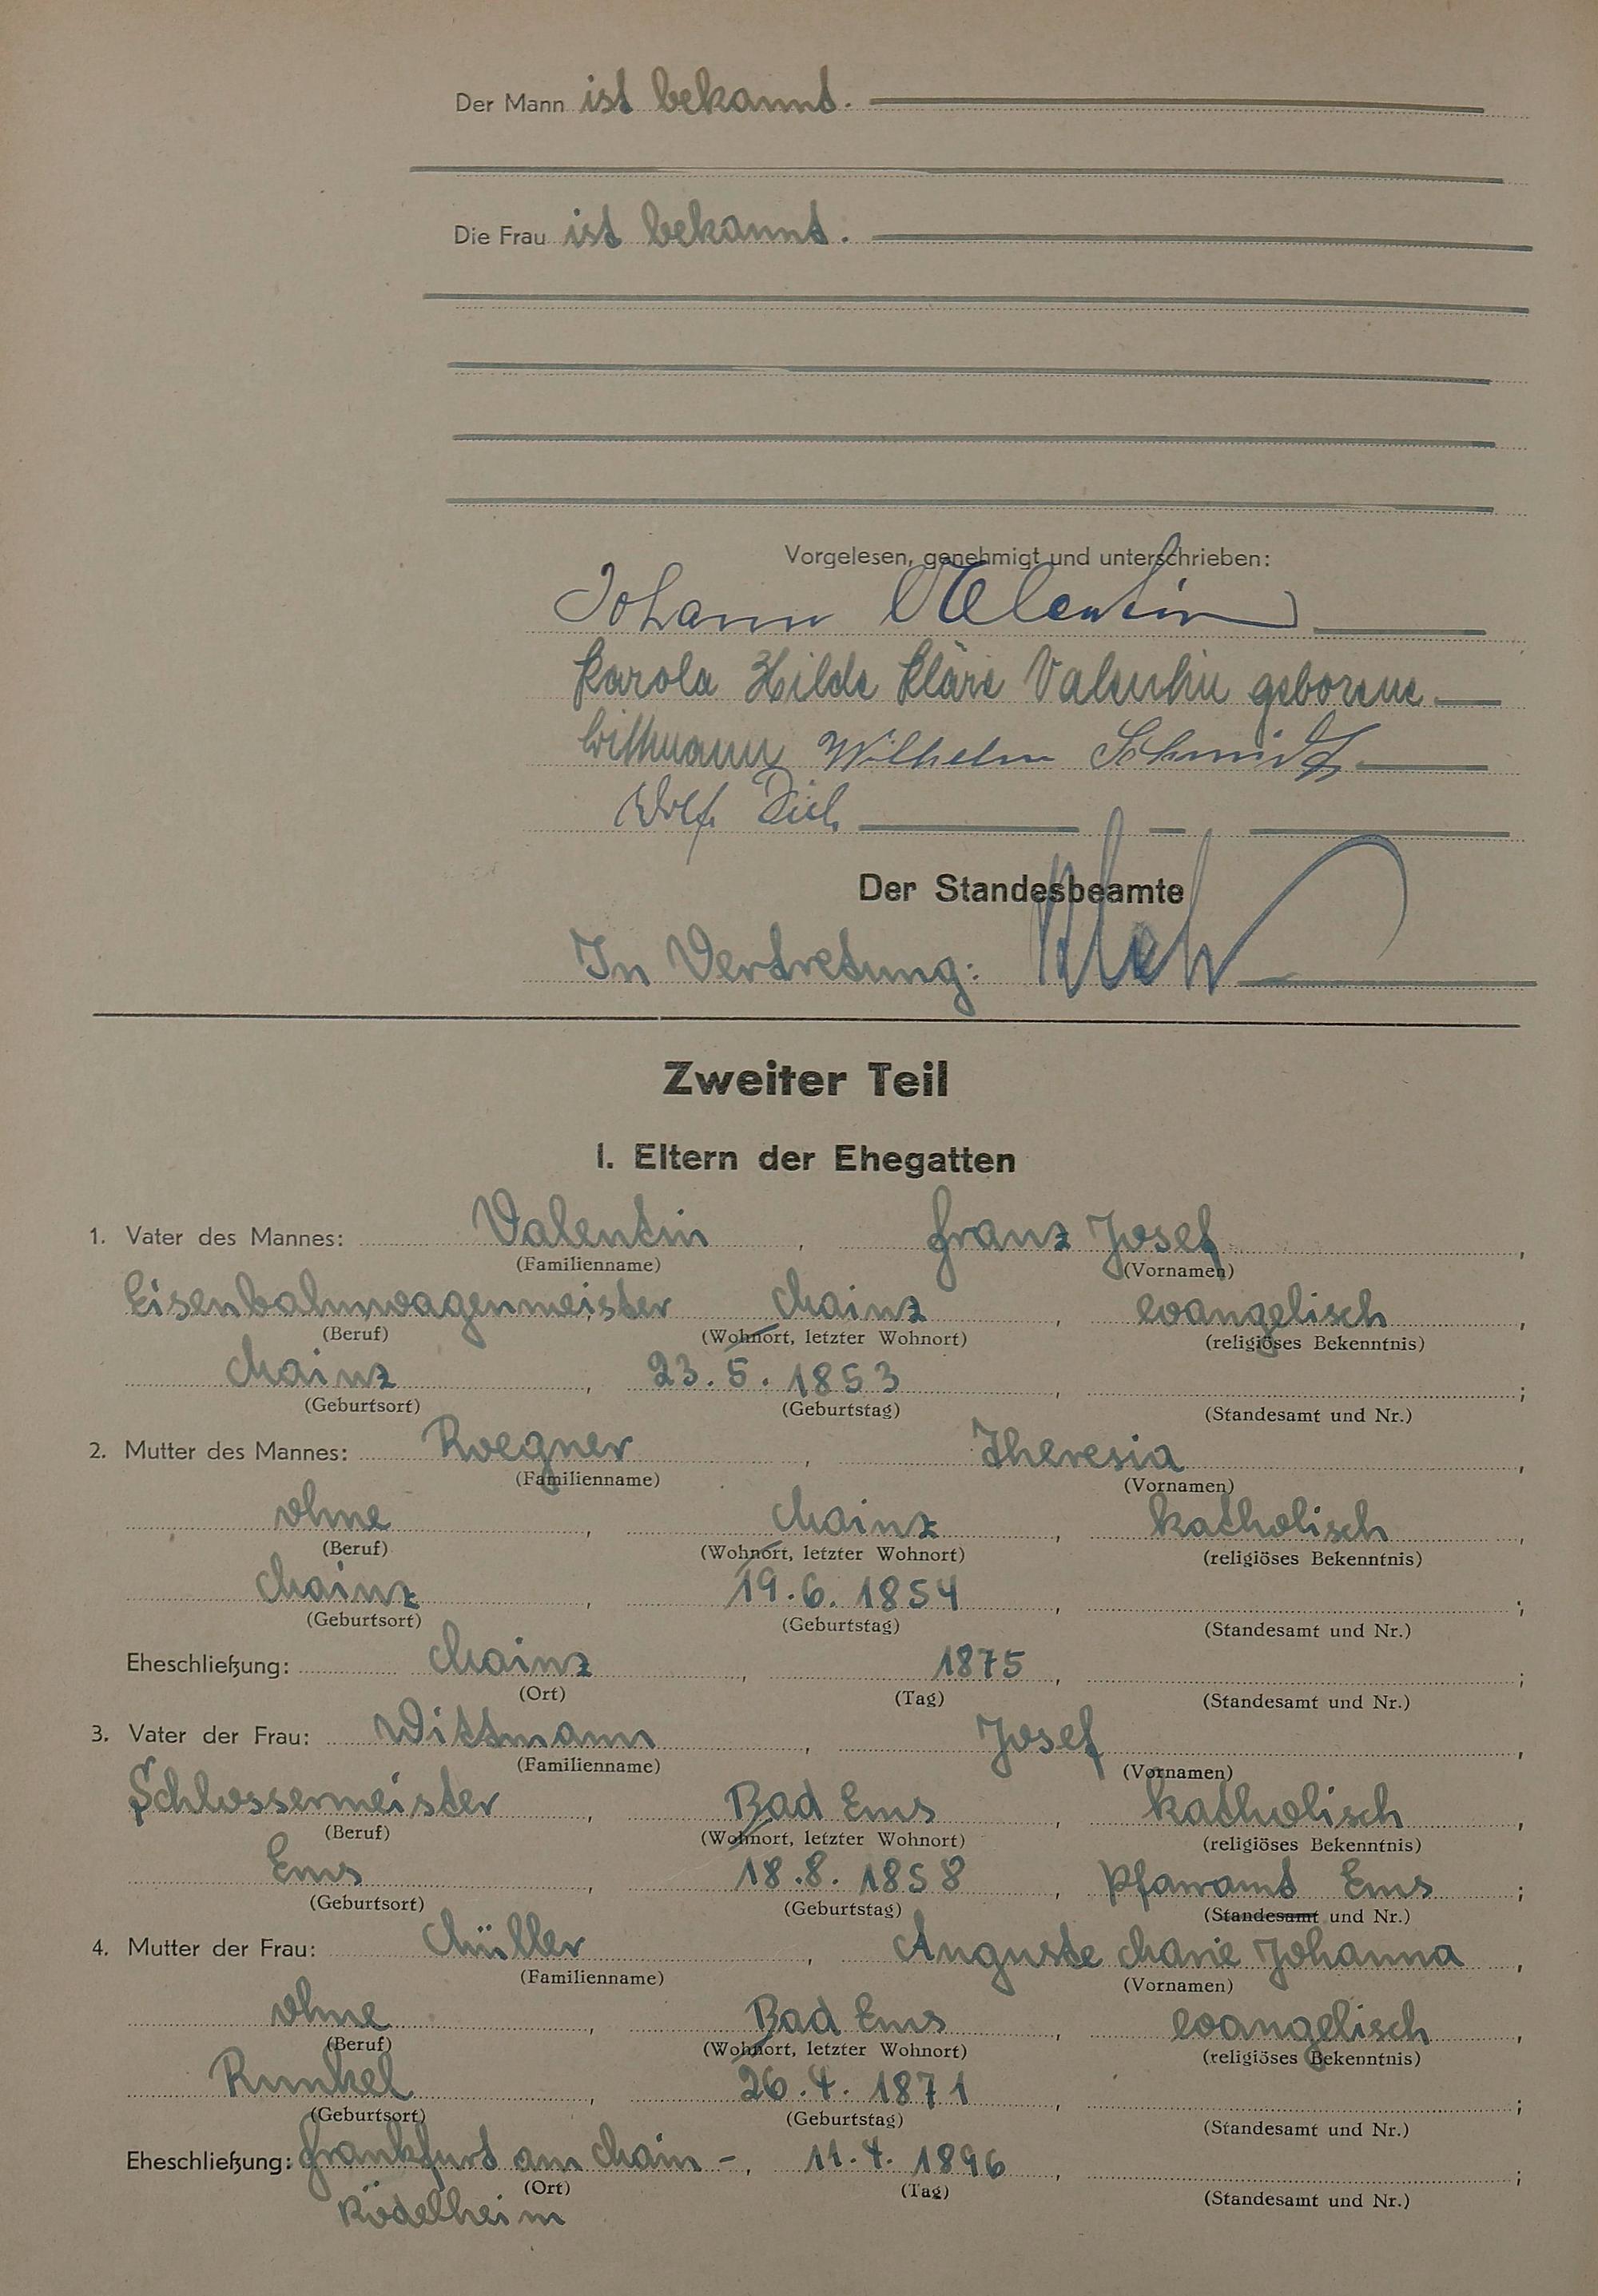 Der Mann ist bekannt.
Die Frau ist bekannt.
Vorgelesen, genehmigt und unterschrieben:
Johann Valentin
Karola Hilde Kläre Valentin geborene
Wittmann Wilhelm Schmidt
Der Standesbeamte
In Vertretung:
Zweiter Teil
I. Eltern der Ehegatten
1. Vater des Mannes: Valentin, Franz Josef,
(Familienname) (Vornamen)
Eisenbahnwagenmeister Mainz, evangelisch,
(Beruf) (Wohnort, letzter Wohnort) (religiöses Bekenntnis)
Mainz, 23.5.1853, ;
(Geburtsort) (Geburtstag) (Standesamt und Nr.)
2. Mutter des Mannes: Roegner, Theresia,
(Familienname) (Vornamen)
ohne, Mainz, katholisch,
(Beruf) (Wohnort, letzter Wohnort) (religiöses Bekenntnis)
Mainz, 19.6.1854, ;
(Geburtsort) (Geburtstag) (Standesamt und Nr.)
Eheschließung: Mainz, 1875, ;
(Ort) (Tag) (Standesamt und Nr.)
3. Vater der Frau: Wittmann, Josef,
(Familienname) (Vornamen)
Schlossermeister, Bad Ems, katholisch,
(Beruf) (Wohnort, letzter Wohnort) (religiöses Bekenntnis)
Ems, 18.8.1858, Pfarramt Ems;
(Geburtsort) (Geburtstag) (Standesamt und Nr.)
4. Mutter der Frau: Müller, Auguste Marie Johanna,
(Familienname) (Vornamen)
ohne, Bad Ems, evangelisch,
(Beruf) (Wohnort, letzter Wohnort) (religiöses Bekenntnis)
Runkel, 26.4.1871, ;
(Geburtsort) (Geburtstag) (Standesamt und Nr.)
Eheschließung: Frankfurt am Main -, 11.4.1896, ;
(Ort) (Tag) (Standesamt und Nr.)
Rödelheim